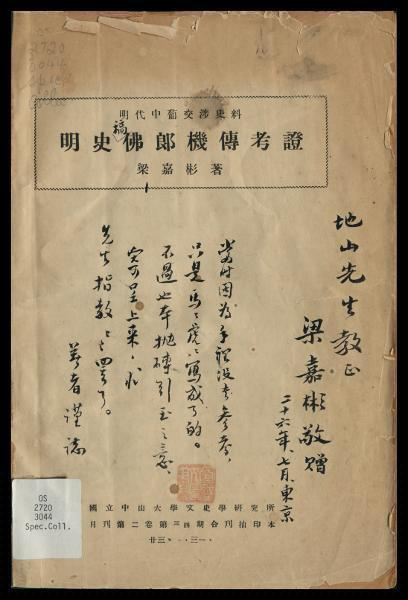 2720
3044
明代中葡交涉史料
明史稿佛郎機傳考證
梁嘉彬著
地山先生教正
梁嘉彬敬贈
二十六年、七月、東京
當時因為手裡沒書參考、
只是馬馬虎虎寫成了的。
不過也本拋磚引玉之意、
呈上來、求
先生指教
著者謹誌
OS
2720
3044
Spec.Coll.
國立中山大學文史學研究所
月刊第二卷第三四期合刊抽印本
廿三、一、三一、